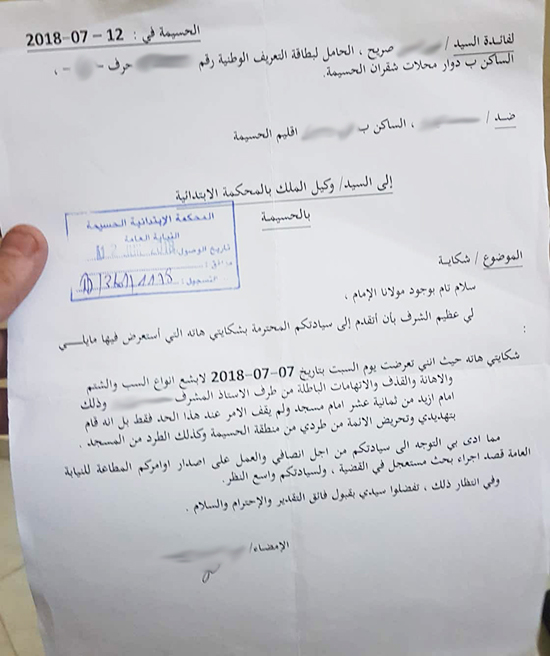 الحسيمة في : 12 – 07-2018
لفائدة السيد / صريح ، الحامل لبطاقة التعريف الوطنية رقم حرف – – ،
الساكن ب دوار محلات شقران الحسيمة.
ضد / ، الساكن ب اقليم الحسيمة
إلى السيد/ وكيل الملك بالمحكمة الابتدائية
بالحسيمة
المحكمة الإبتدائية الحسيمة
النيابة العامة
تاريخ الوصول
الموضوع / شكاية
سلام تام بوجود مولانا الإمام ،
لي عظيم الشرف بأن أتقدم إلى سيادتكم المحترمة بشكايتي هاته التي أستعرض فيها مايلــــي
:
شكايتي هاته حيث انني تعرضت يوم السبت بتاريخ 07-07-2018 لابشع انواع السب والشتم
والاهانة والقذف والاتهامات الباطلة من طرف الاستاذ المشرف وذلك
امام ازيد من ثمانية عشر امام مسجد ولم يقف الامر عند هذا الحد فقط بل انه قام
بتهديدي وتحريض الائمة من طردي من منطقة الحسيمة وكذلك الطرد من المسجد .
مما ادى بي التوجه الى سيادتكم من اجل انصافي والعمل على اصدار اوامركم المطاعة للنيابة
العامة قصد اجراء بحث مستعجل في القضية ، ولسيادتكم واسع النظر.
وفي انتظار ذلك ، تفضلوا سيدي بقبول فائق التقدير والإحترام والسلام .
الإمضاء/